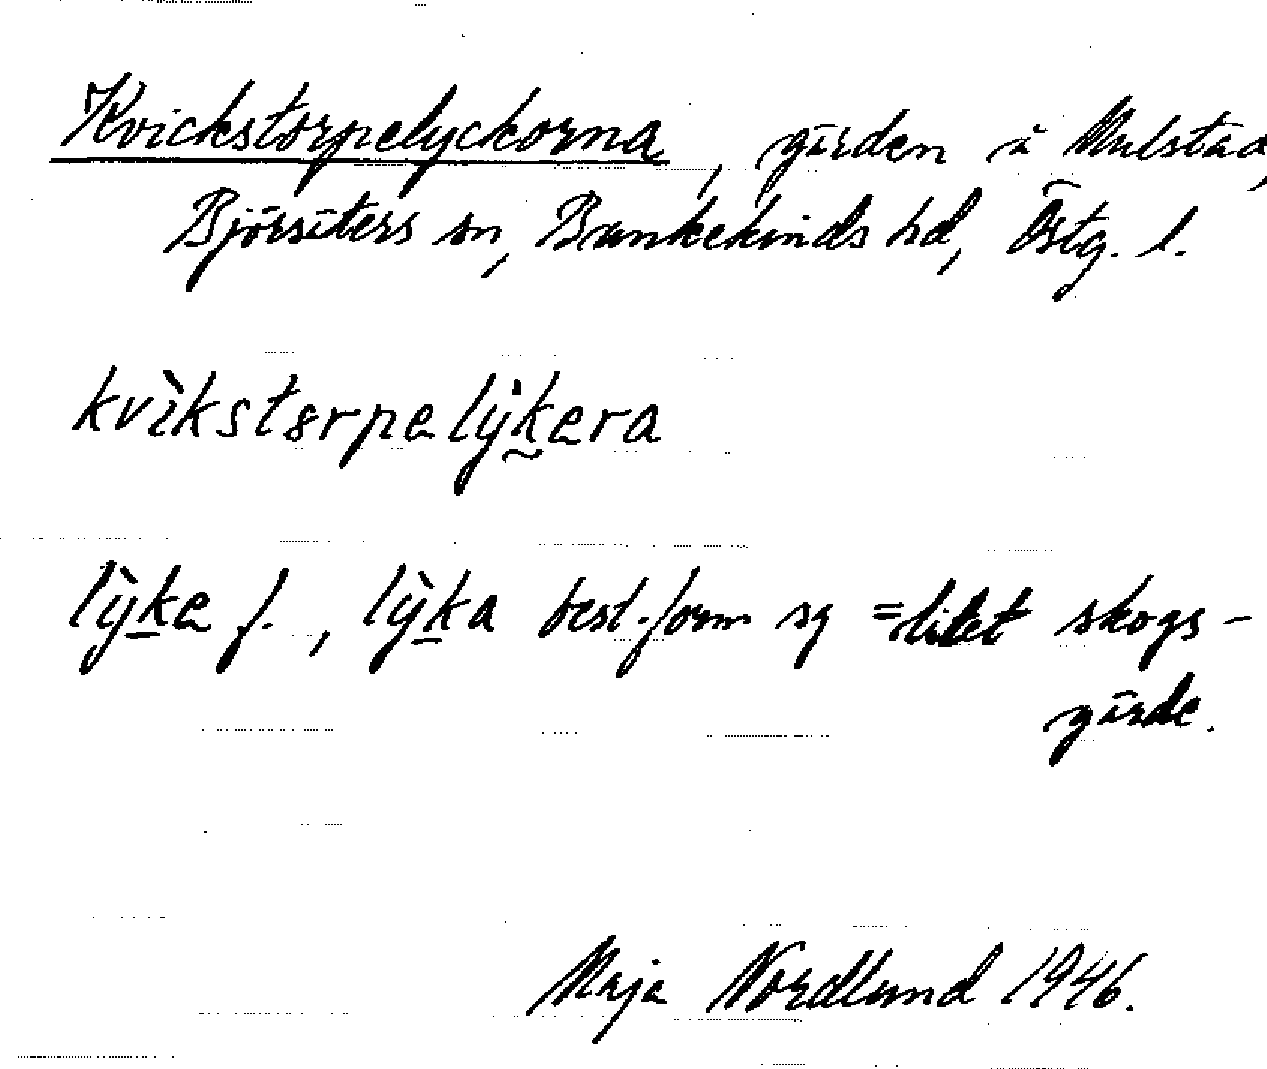 Kvickstorpelyckorna, gärden å Mulstad,
Björsäters sn, Bankekinds hd, Östg. l.
kvìkstɵrpelỳk̰era
lỳḵe f., lỳḵa best. form sg = litet skogs-
gärde.
Maja Nordlund 1946.